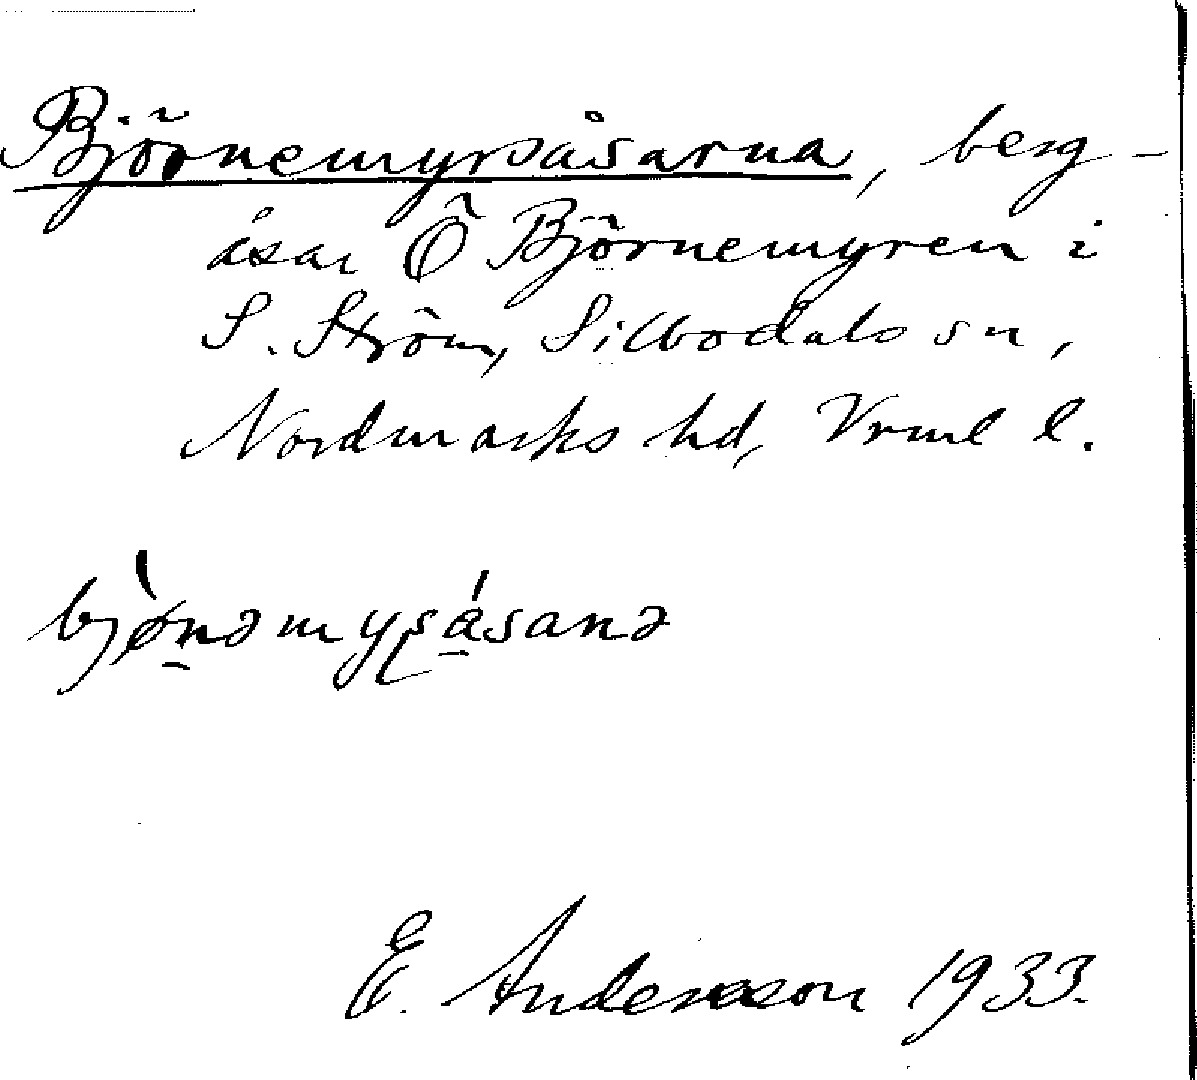 Björnemyrsåsarna, berg-
åsar Ö Björnemyren i
S. Ström, Silbodals sn,
Nordmarks hd, Vrml l.
bjø̀nəmyʂásanə
E. Andersson 1933.